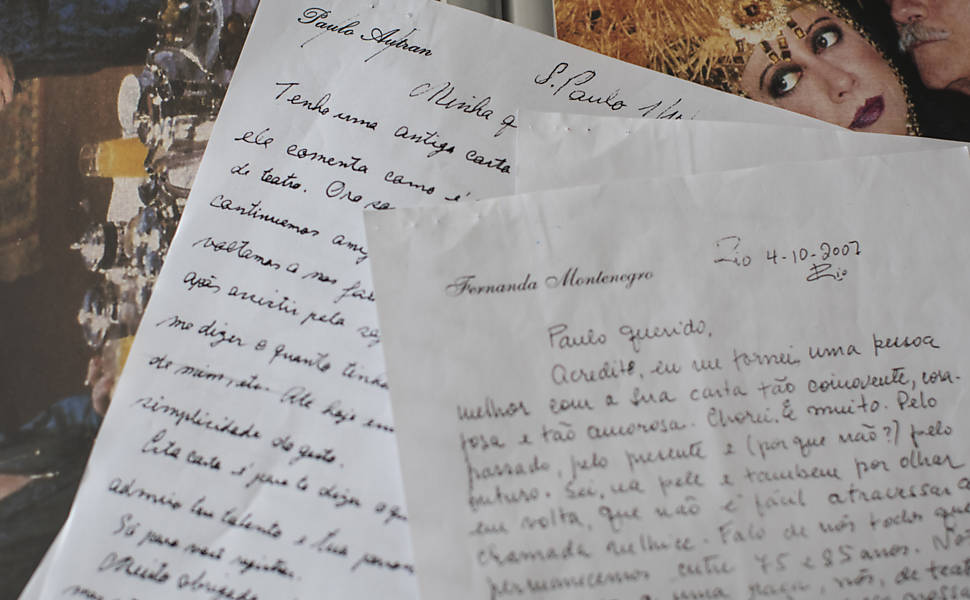 Paulo Autran
S. Paulo
Minha q
Tenho uma antiga carta
ele comenta como é
de teatro. Ora
continuamos
voltamos a nos
após assistir pela
me dizer o quanto tinha
do ministro. Até hoje
simplicidade do gesto.
Esta carta é para te dizer o
admiro teu talento e tua
Só para mais registrar.
Muito obrigado
Fernanda Montenegro
Rio 4-10-2007
Rio
Paulo querido,
Acredito, eu me tornei uma pessoa
melhor com a sua carta tão comovente, cora-
josa e tão amorosa. Chorei. E muito. Pelo
passado, pelo presente e (por que não?) pelo
futuro. Sei, na pele e tambem por olhar
em volta, que não é fácil atravessar a
chamada velhice. Falo de nós todos que
permanecemos entre 75 e 85 anos.
uma raça, nós, de